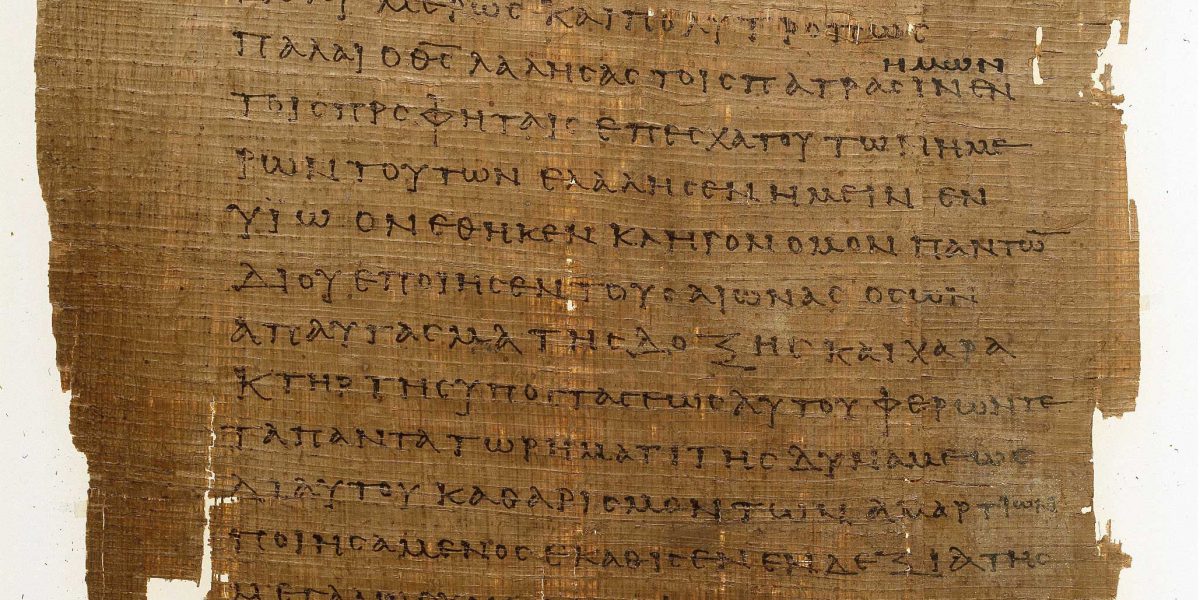 ΜΕΡΩϹ ΚΑΙ ΠΟΛΥΤΡΟΠΩϹ
ΗΜΩΝ
ΠΑΛΑΙ Ο Θ̅Ϲ̅ ΛΑΛΗϹΑϹ ΤΟΙϹ ΠΑΤΡΑϹΙΝ ΕΝ
ΤΟΙϹ ΠΡΟΦΗΤΑΙϹ ΕΠ ΕϹΧΑΤΟΥ ΤΩΝ ΗΜΕ
ΡΩΝ ΤΟΥΤΩΝ ΕΛΑΛΗϹΕΝ ΗΜΕΙΝ ΕΝ
ΥΪΩ ΟΝ ΕΘΗΚΕΝ ΚΛΗΡΟΝΟΜΟΝ ΠΑΝΤΩ̅
ΔΙ ΟΥ ΕΠΟΙΗϹΕΝ ΤΟΥϹ ΑΙΩΝΑϹ ΟϹ ΩΝ
ΑΠΑΥΓΑϹΜΑ ΤΗϹ ΔΟΞΗϹ ΚΑΙ ΧΑΡΑ
ΚΤΗΡ ΤΗϹ ΥΠΟϹΤΑϹΕΩϹ ΑΥΤΟΥ ΦΕΡΩΝ ΤΕ
ΤΑ ΠΑΝΤΑ ΤΩ ΡΗΜΑΤΙ ΤΗϹ ΔΥΝΑΜΕΩϹ
ΔΙ ΑΥΤΟΥ ΚΑΘΑΡΙϹΜΟΝ ΤΩΝ ΑΜΑΡΤΙΩΝ
ΠΟΙΗϹΑΜΕΝΟϹ ΕΚΑΘΙϹΕΝ ΕΝ ΔΕΞΙΑ ΤΗϹ